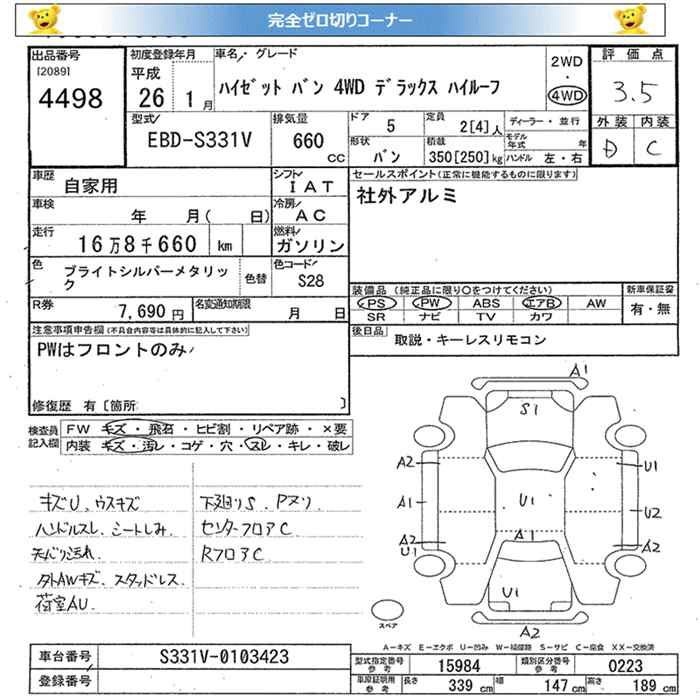 完全ゼロ切りコーナー
出品番号
[2089]
4498
初度登録年月
平成
26 1月
車名・グレード
ハイゼット バン 4WD デラックス ハイルーフ
2WD
・
4WD
評価点
3.5
外装 内装
D C
型式
EBD-S331V
排気量
660
CC
ドア 5
定員 2[4]人
形状 バン
積載 350[250]kg
ディーラー・並行
モデル年式 年
ハンドル 左・右
車歴 自家用
シフト IAT
セールスポイント(正常に機能するものに限ります)
社外アルミ
車検 年 月( 日)
冷房 AC
走行 16万8千660 km
燃料 ガソリン
色 ブライトシルバーメタリック
色替
色コード S28
装備品(純正品に限り○をつけてください)
PS PW ABS エアB AW
SR ナビ TV カワ
新車保証書
有・無
R券 7,690円
名変通知期限 月 日
後日品 取説・キーレスリモコン
注意事項申告欄(不具合内容等は具体的に記入して下さい)
PWはフロントのみ
修復歴 有[箇所 ]
検査員記入欄
FW キズ・飛石・ヒビ割・リペア跡・×要
内装 キズ・汚レ・コゲ・穴・スレ・キレ・破レ
キズU、ウスキズ
ハンドルスレ、シートしみ、
天バリ汚れ
外AWキズ、スタッドレス
荷室AU、
下廻りS、Pヌリ
センターフロアC
RフロアC
A1
S1
A2 U1
A1 U1 U2
A2 A1 A2
U1
U1
A2
スペア
A-キズ E-エクボ U-凹み W-補修跡 S-サビ C-腐食 XX-交換済
車台番号 S331V-0103423
登録番号
型式指定番号 参考 15984
類別区分番号 参考 0223
車庫証明用 参考 長さ 339cm 幅 147cm 高さ 189cm